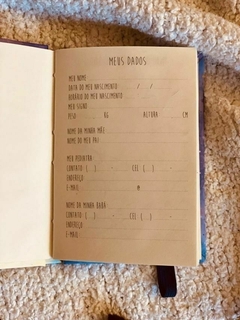 MEUS DADOS
MEU NOME
DATA DO MEU NASCIMENTO / /
HORÁRIO DO MEU NASCIMENTO
MEU SIGNO
PESO KG ALTURA CM
NOME DA MINHA MÃE
NOME DO MEU PAI
MEU PEDIATRA
CONTATO ( ) - CEL ( ) -
ENDEREÇO
E-MAIL
NOME DA MINHA BABÁ
CONTATO ( ) - CEL ( ) -
ENDEREÇO
E-MAIL